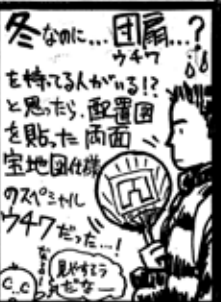 冬なのに…団扇…?
ウチワ
を持ってる人がいる!?
と思ったら、配置図
を貼った両面
宝地図仕様
のスペシャル
ウチワだった…!
なるほど
見やすそう
だな〜